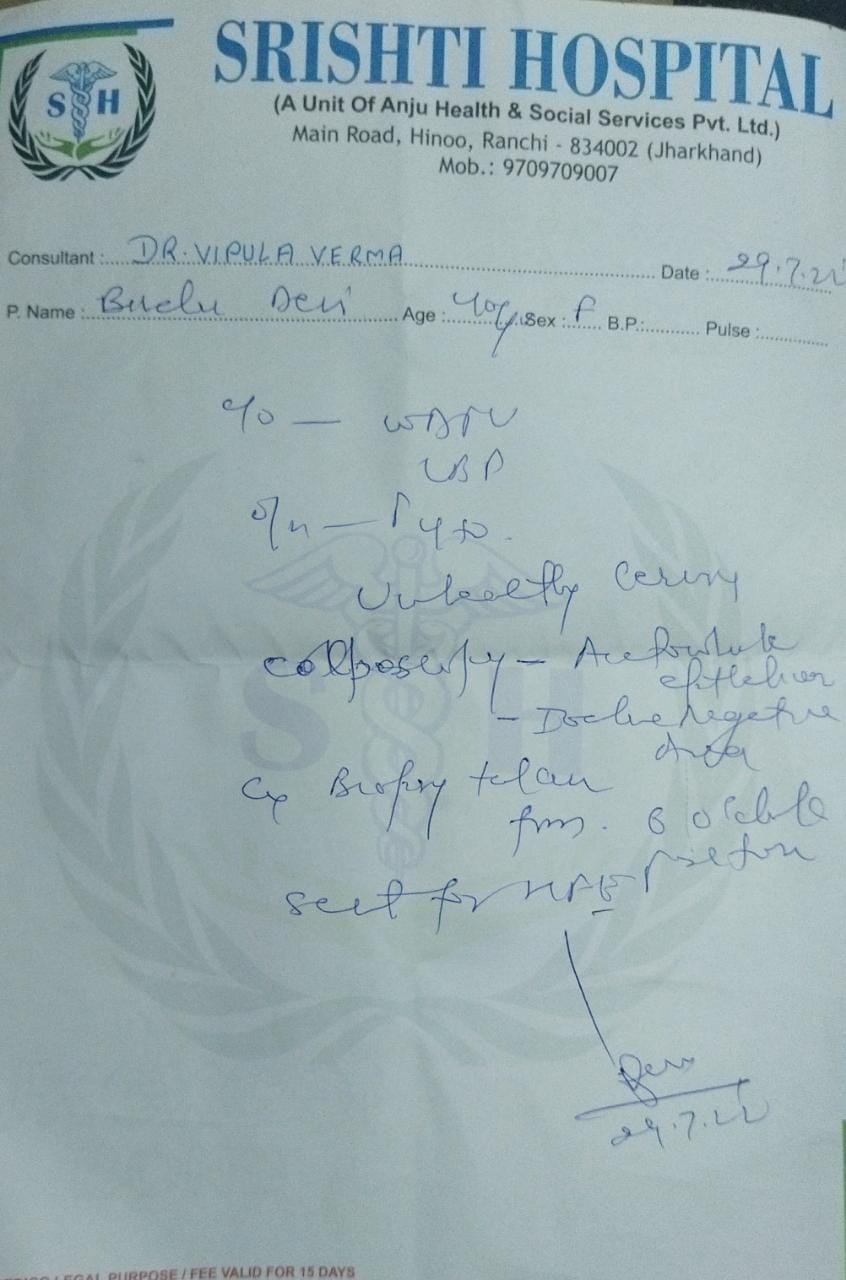 S H
SRISHTI HOSPITAL
(A Unit Of Anju Health & Social Services Pvt. Ltd.)
Main Road, Hinoo, Ranchi - 834002 (Jharkhand)
Mob.: 9709709007
Consultant : DR. VIPULA VERMA Date : 29.7.22
P. Name : Devi Age : 40y Sex : F B.P.: Pulse :
c/o —
LBP
Unhealthy Cervix
colposcopy — Acetowhite
epithelium
— Iodine Negative
Area
Cx Biopsy taken
from 6 o'clock
position
sent for HPE
29.7.22
LEGAL PURPOSE / FEE VALID FOR 15 DAYS